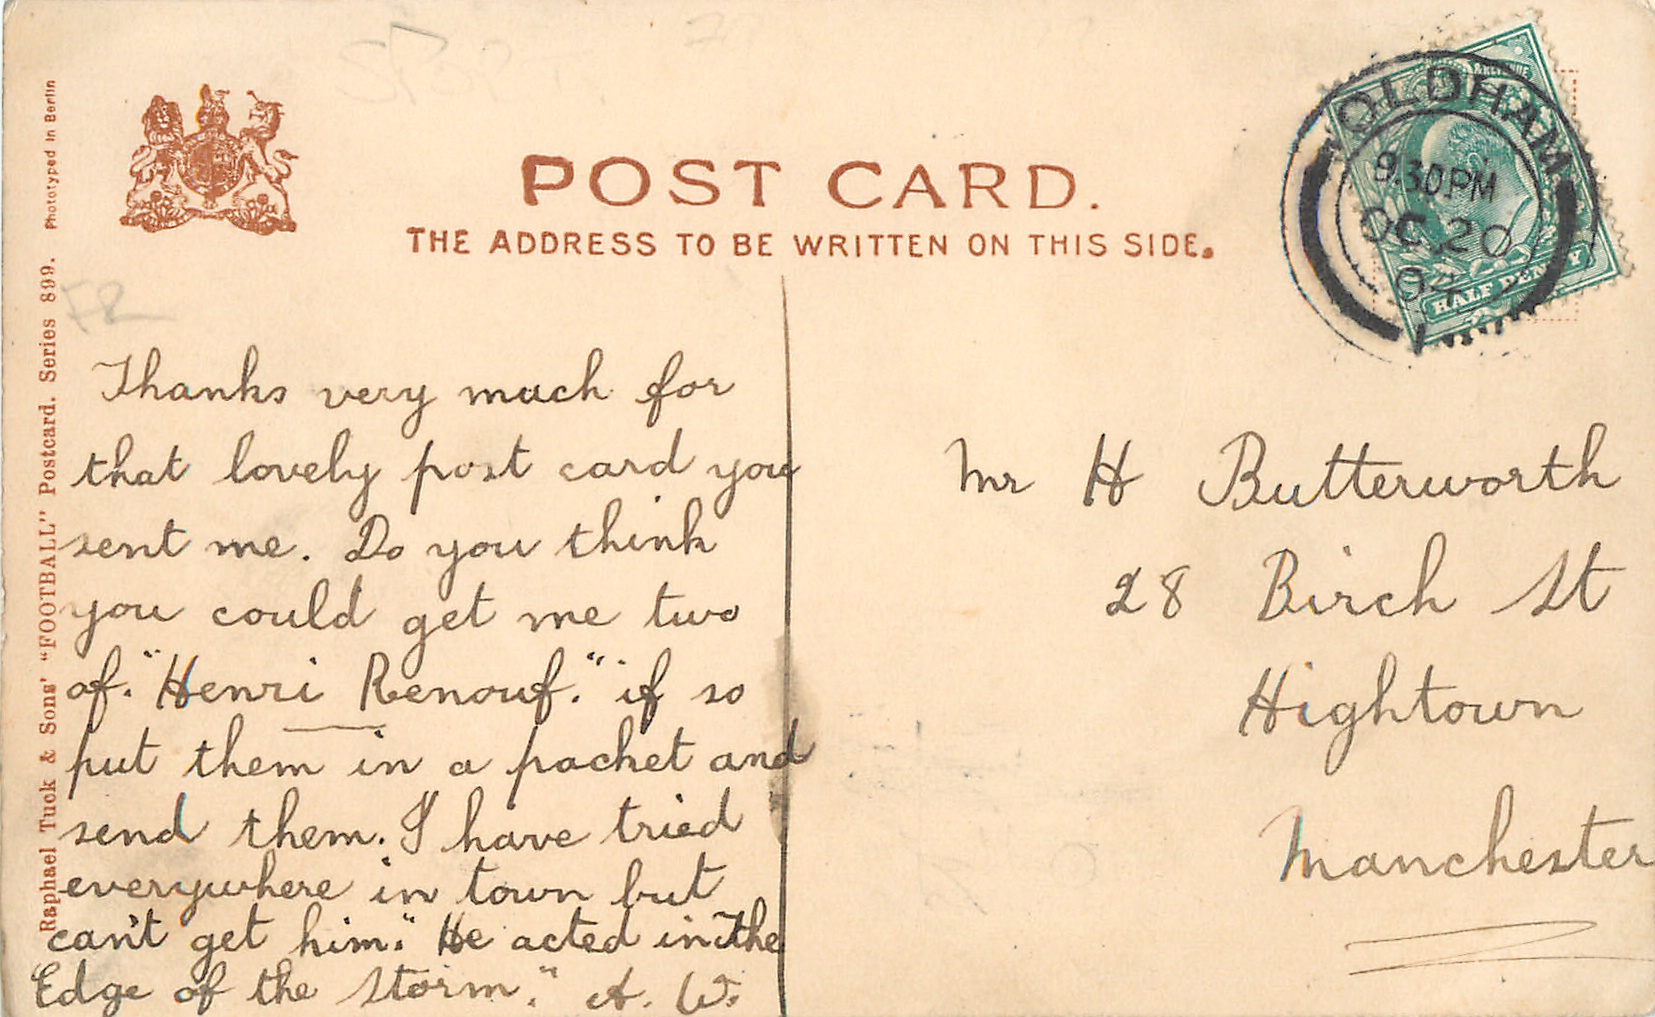 POST CARD.
THE ADDRESS TO BE WRITTEN ON THIS SIDE.
Raphael Tuck & Sons' "FOOTBALL" Postcard. Series 899. Phototyped in Berlin
& REVENUE
HALF PENNY
OLDHAM
9.30PM
OC 20
04
F2
Thanks very much for
that lovely post card you
sent me. Do you think
you could get me two
of. "Henri Renouf." if so
put them in a packet and
send them. I have tried
everywhere in town but
can't get him." He acted in "The
Edge of the Storm." A. W.
Mr H Butterworth
28 Birch St
Hightown
Manchester